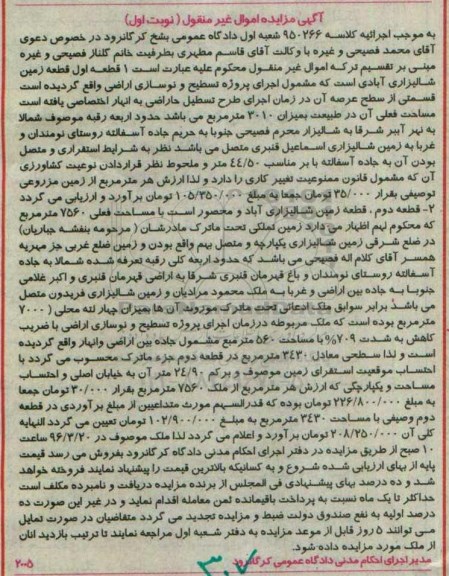 آگهی مزایده اموال غیر منقول ( نوبت اول)
به موجب اجرائیه کلاسه ۹۵۰۲۶۶ شعبه اول دادگاه عمومی بخش کرگانرود در خصوص دعوی
آقای محمد فصیحی و غیره با وکالت آقای قاسم مطهری بطرفیت خانم گلناز فصیحی و غیره
مبنی بر تقسیم ترکه اموال غیر منقول محکوم علیه عبارت است ۱ قطعه اول قطعه زمین
شالیزاری آبادی است که مشمول اجرای پروژه تسطیح و نوسازی اراضی واقع گردیده است
قسمتی از سطح عرصه آن در زمان اجرای طرح تسطیل حاراضی به انهار اختصاصی یافته است
مساحت فعلی آن در طبیعت بمیزان ۳۰۱۰ مترمربع می باشد حدود اربعه رقبه موصوف شمالا
به نهر آببر شرقا به شالیزار محرم فصیحی جنوبا به حریم جاده آسفالته روستای نومندان و
غربا به زمین شالیزاری اسماعیل قنبری متصل می باشد نظر به شرایط استقراری و متصل
بودن آن به جاده آسفالته با بر مناسب ۴۴/۵۰ متر و ملحوظ نظر قراردادن نوعیت کشاورزی
آن که مشمول قانون ممنوعیت تغییر کاری را دارد و لذا ارزش هر مترمربع از زمین مزروعی
توصیفی بقرار ۳۵/۰۰۰ تومان جمعا به مبلغ ۱۰۵/۳۵۰/۰۰۰ تومان برآورد و ارزیابی می گردد
۲- قطعه دوم ، قطعه زمین شالیزاری آباد و محصور است با مساحت فعلی ۷۵۶۰ مترمربع
که محکوم لهم اظهار می دارد زمین تملکی تحت ماترک مادرشان ( مرحومه بنفشه جباریان)
در ضلع شرقی زمین شالیزاری یکپارچه و متصل بهم واقع بودن و زمین ضلع غربی جز مهریه
همسر آقای کلام اله فصیحی می باشد که حدود اربعه کلی رقبه تعرفه شده شمالا به جاده
آسفالته روستای نومندان و باغ قهرمان قنبری شرقا به اراضی قهرمان قنبری و اکبر غلامی
جنوبا به جاده بین اراضی و غربا به ملک محمود مرادیان و زمین شالیزاری فریدون متصل
می باشد برابر سوابق ملک ادعائی تحت ماترک موروث آن ها بمیزان چهار لته محلی ( ۷۰۰۰
مترمربع بوده است که ملک مربوطه درزمان اجرای پروژه تسطیح و نوسازی اراضی با ضریب
کاهش به شدت ۷۰۹% با مساحت ۵۶۰ مترمبع مشمول جاده بین اراضی وانهار واقع گردیده
است و لذا سطحی معادل ۳۴۳۰ مترمربع در قطعه دوم جزء ماترک محسوب می گردد با
احتساب موقعیت استقرای زمین موصوف و برکم ۲۴/۹۰ متر آن به خیابان اصلی و احتساب
مساحت و یکپارچکی که ارزش هر مترمربع از ملک ۷۵۶۰ مترمربع بقرار ۳۰/۰۰۰ تومان جمعا
به مبلغ ۲۲۶/۸۰۰/۰۰۰ تومان بوده که قدرالسهم مورث متداعیین از مبلغ برآوردی در قطعه
دوم وصیفی با مساحت ۳۴۳۰ مترمربع به مبلغ ۱۰۲/۹۰۰/۰۰۰ تومان تعیین می گردد النهایه
کلی آن ۲۰۸/۲۵۰/۰۰۰ تومان برآورد و اعلام می گردد لذا ملک موصوف در ۹۶/۳/۲۰ ساعت
۱۰ صبح از طریق مزایده در دفتر اجرای احکام مدنی دادگاه کرگانرود بفروش می رسد قیمت
پایه از بهای ارزیابی شده شروع و به کسانیکه بالاترین قیمت را پیشنهاد نمایند فروخته خواهد
شد و ده درصد بهای پیشنهادی فی المجلس از برنده مزایده دریافت و نامبرده مکلف است
حداکثر تا یک ماه نسبت به پرداخت باقیمانده ثمن معامله اقدام نماید و در غیر این صورت ده
درصد اولیه به نفع صندوق دولت ضبط و مزایده تجدید می گردد متقاضیان در صورت تمایل
می توانند ۵ روز قابل از موعد مزایده به دفتر شعبه اول مراجعه نمایند تا ترتیب بازدید انان
از ملک مورد مزایده داده شود.
مدیر اجرای احکام مدنی دادگاه عمومی کرگانرود
۲۰۰۵
۳۰۷